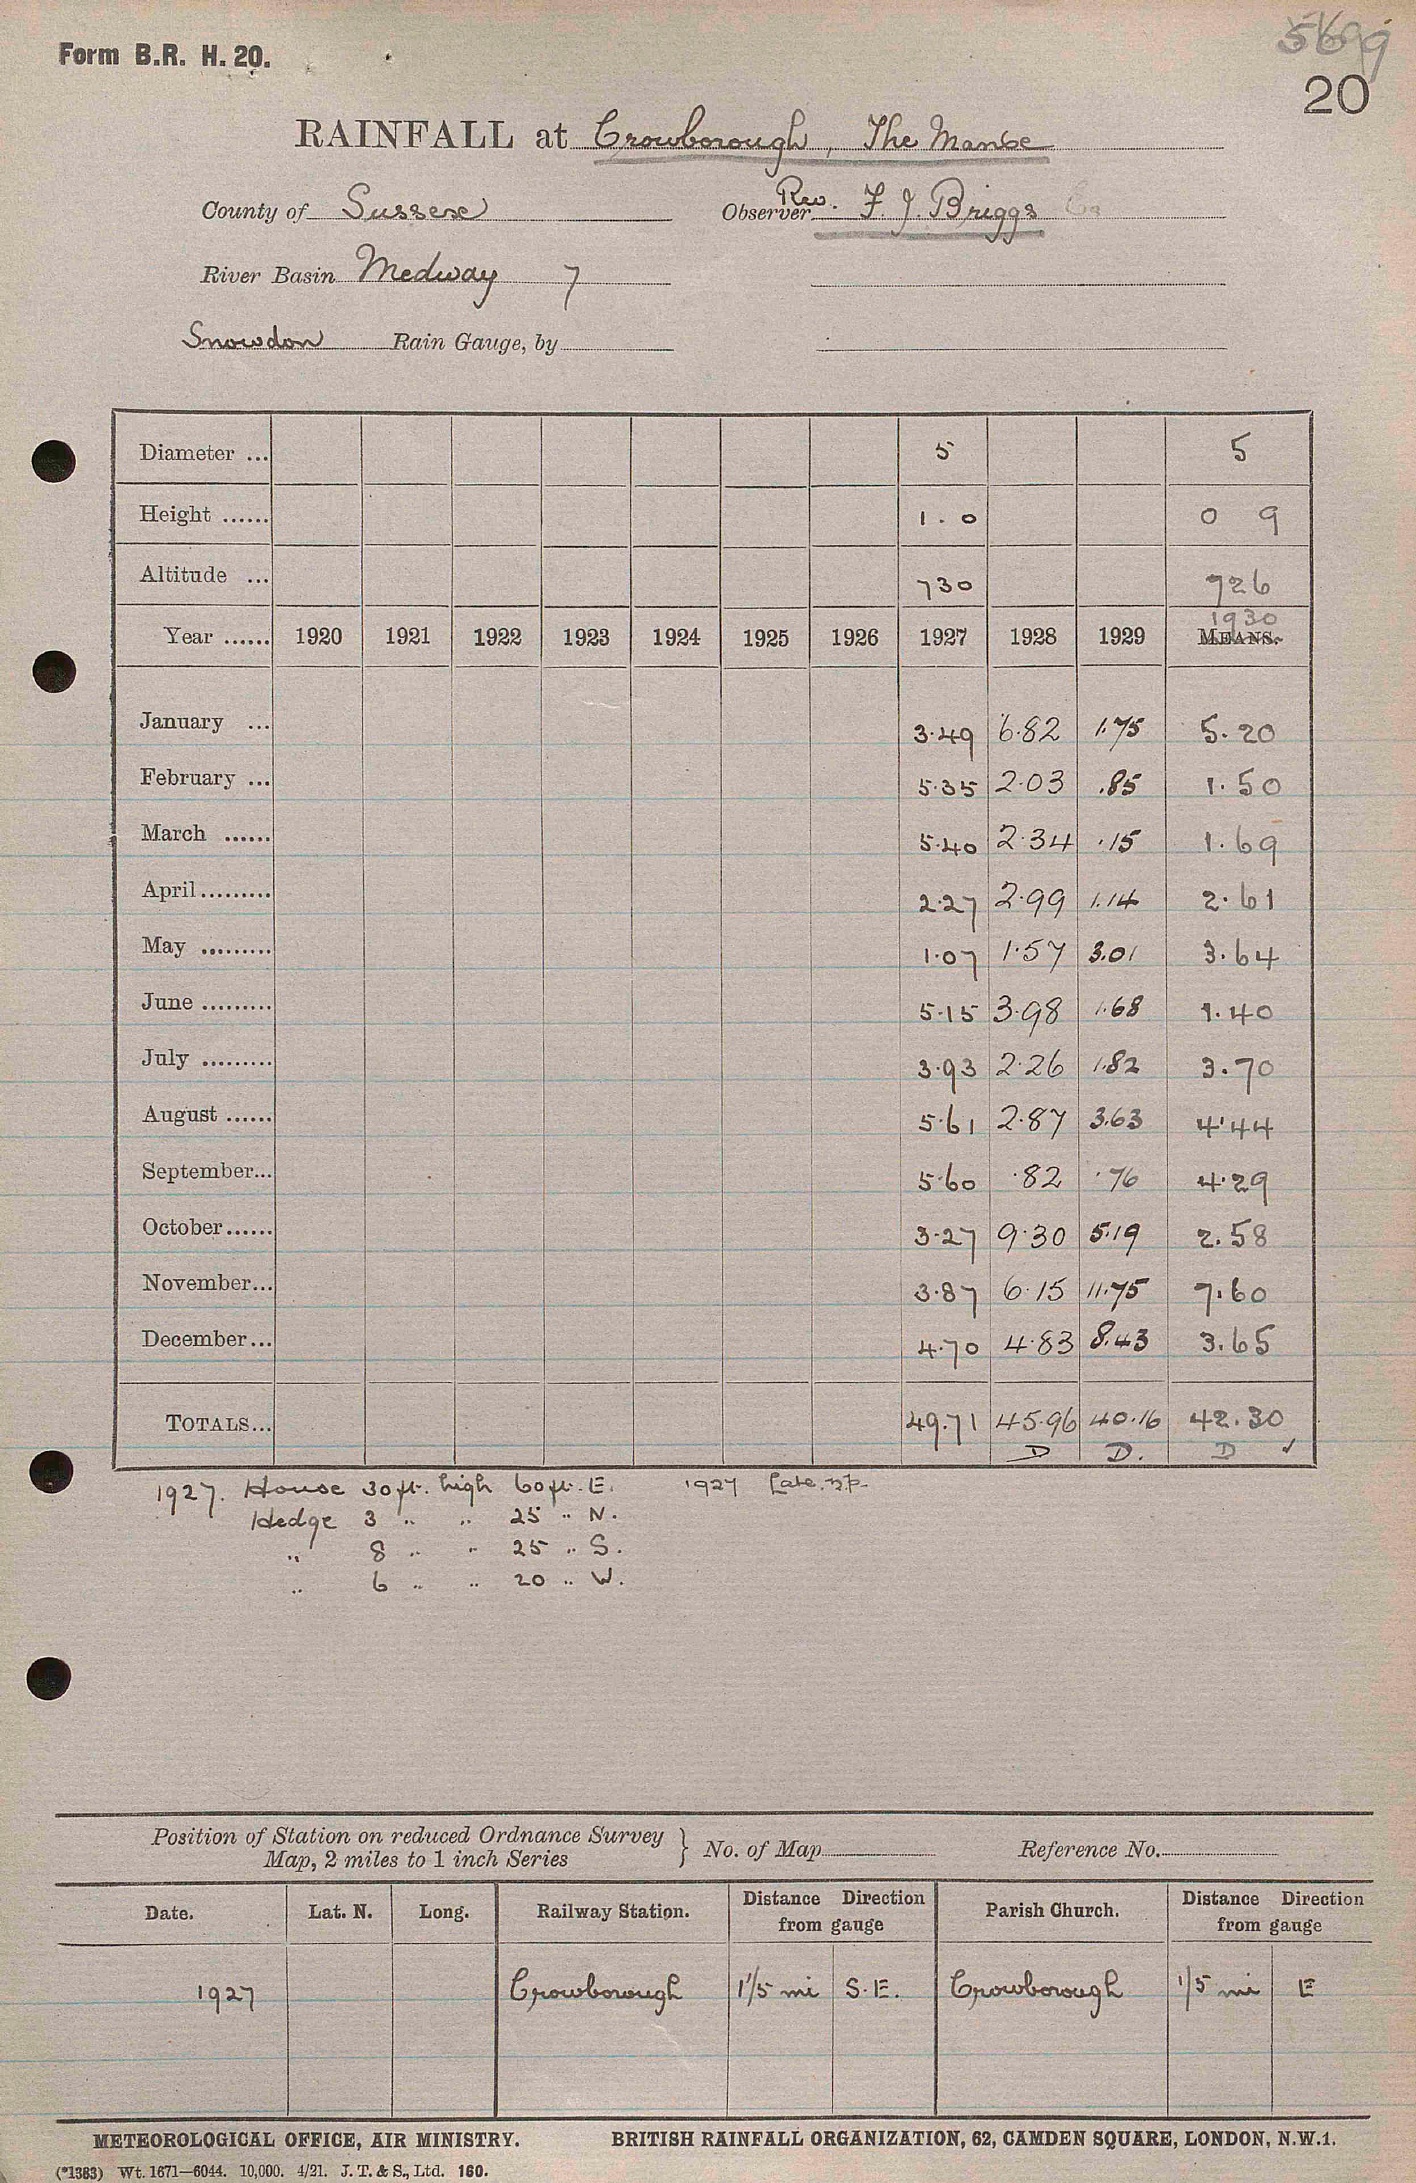 Form B.R. H. 20.
5699
20
RAINFALL at Crowborough, The Manse
County of Sussex Observer Rev. F. J. Briggs
River Basin Medway 7
Snowdon Rain Gauge, by
Diameter ... 5 5
Height ...... 1.0 0 9
Altitude ... 730 726
1930
Year ...... 1920 1921 1922 1923 1924 1925 1926 1927 1928 1929 MEANS.
January ... 3.49 6.82 1.75 5.20
February ... 5.35 2.03 .85 1.50
March ...... 5.40 2.34 .15 1.69
April ......... 2.27 2.99 1.14 2.61
May ......... 1.07 1.57 3.01 3.64
June ......... 5.15 3.98 1.68 1.40
July ......... 3.93 2.26 1.82 3.70
August ...... 5.61 2.87 3.63 4.44
September... 5.60 .82 .76 4.29
October...... 3.27 9.30 5.19 2.58
November... 3.87 6.15 11.75 7.60
December... 4.70 4.83 8.43 3.65
TOTALS... 49.71 45.96 40.16 42.30
D D. D ✓
1927. House 30 ft. high 60 ft. E. 1927 Late. n.p.
Hedge 3 " " 25 " N.
" 8 " " 25 " S.
" 6 " " 20 " W.
Position of Station on reduced Ordnance Survey
Map, 2 miles to 1 inch Series } No. of Map Reference No.
Date. Lat. N. Long. Railway Station. Distance Direction from gauge Parish Church. Distance Direction from gauge
1927 Crowborough 1 1/5 mi S.E. Crowborough 1/5 mi E
METEOROLOGICAL OFFICE, AIR MINISTRY. BRITISH RAINFALL ORGANIZATION, 62, CAMDEN SQUARE, LONDON, N.W.1.
(*1383) Wt. 1671—6044. 10,000. 4/21. J. T. & S., Ltd. 160.